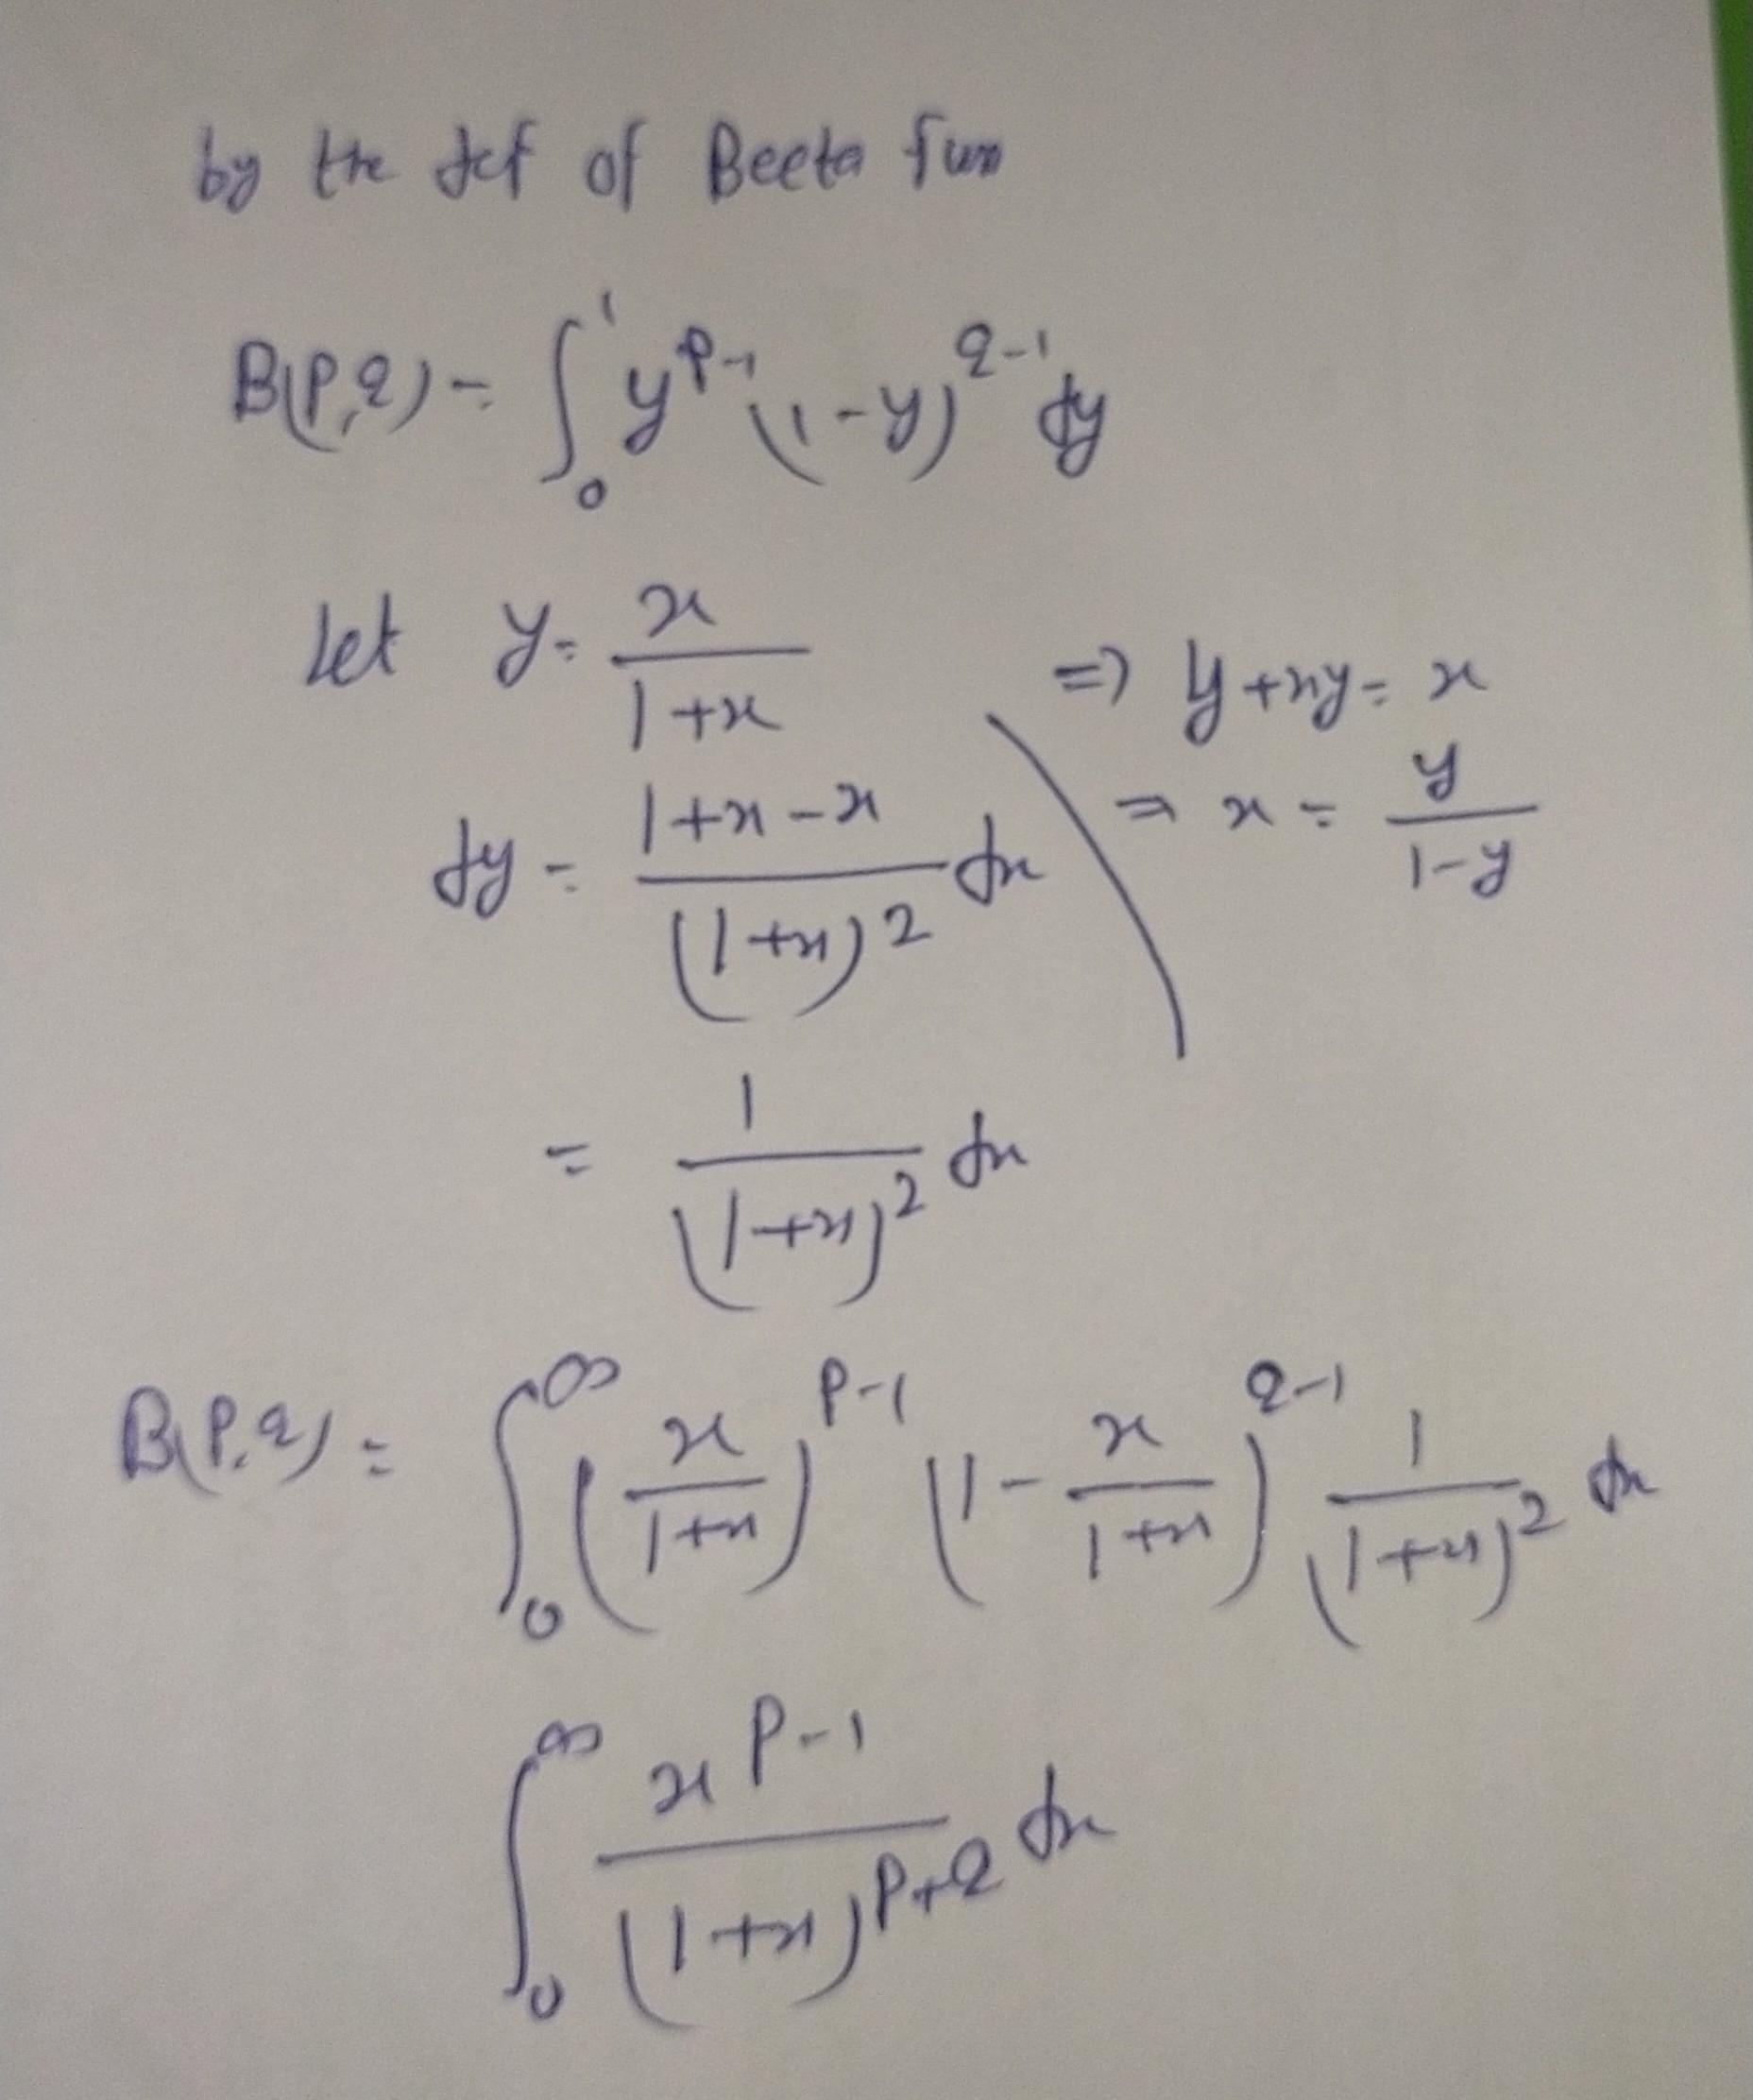 by the def of Beeta fun
B(P,q) = ∫₀¹ y^{P-1} (1-y)^{q-1} dy
Let y = x/(1+x) => y+xy = x
=> x = y/(1-y)
dy = (1+x-x)/(1+x)^2 dx
= 1/(1+x)^2 dx
B(P,q) = ∫₀^∞ (x/(1+x))^{P-1} (1 - x/(1+x))^{q-1} 1/(1+x)^2 dx
∫₀^∞ x^{P-1}/(1+x)^{P+q} dx